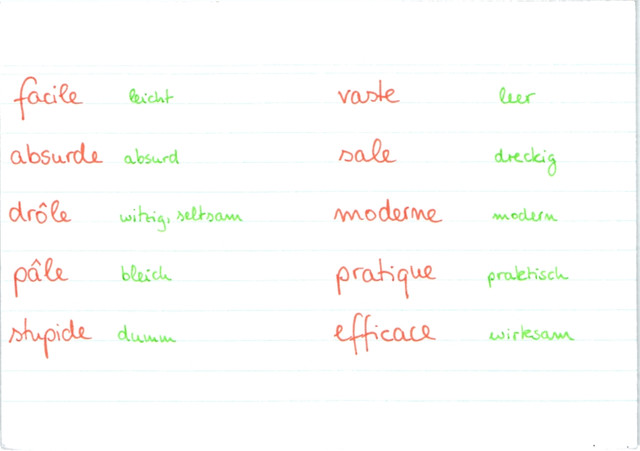 facile leicht vaste leer
absurde absurd sale dreckig
drôle witzig, seltsam moderne modern
pâle bleich pratique praktisch
stupide dumm efficace wirksam